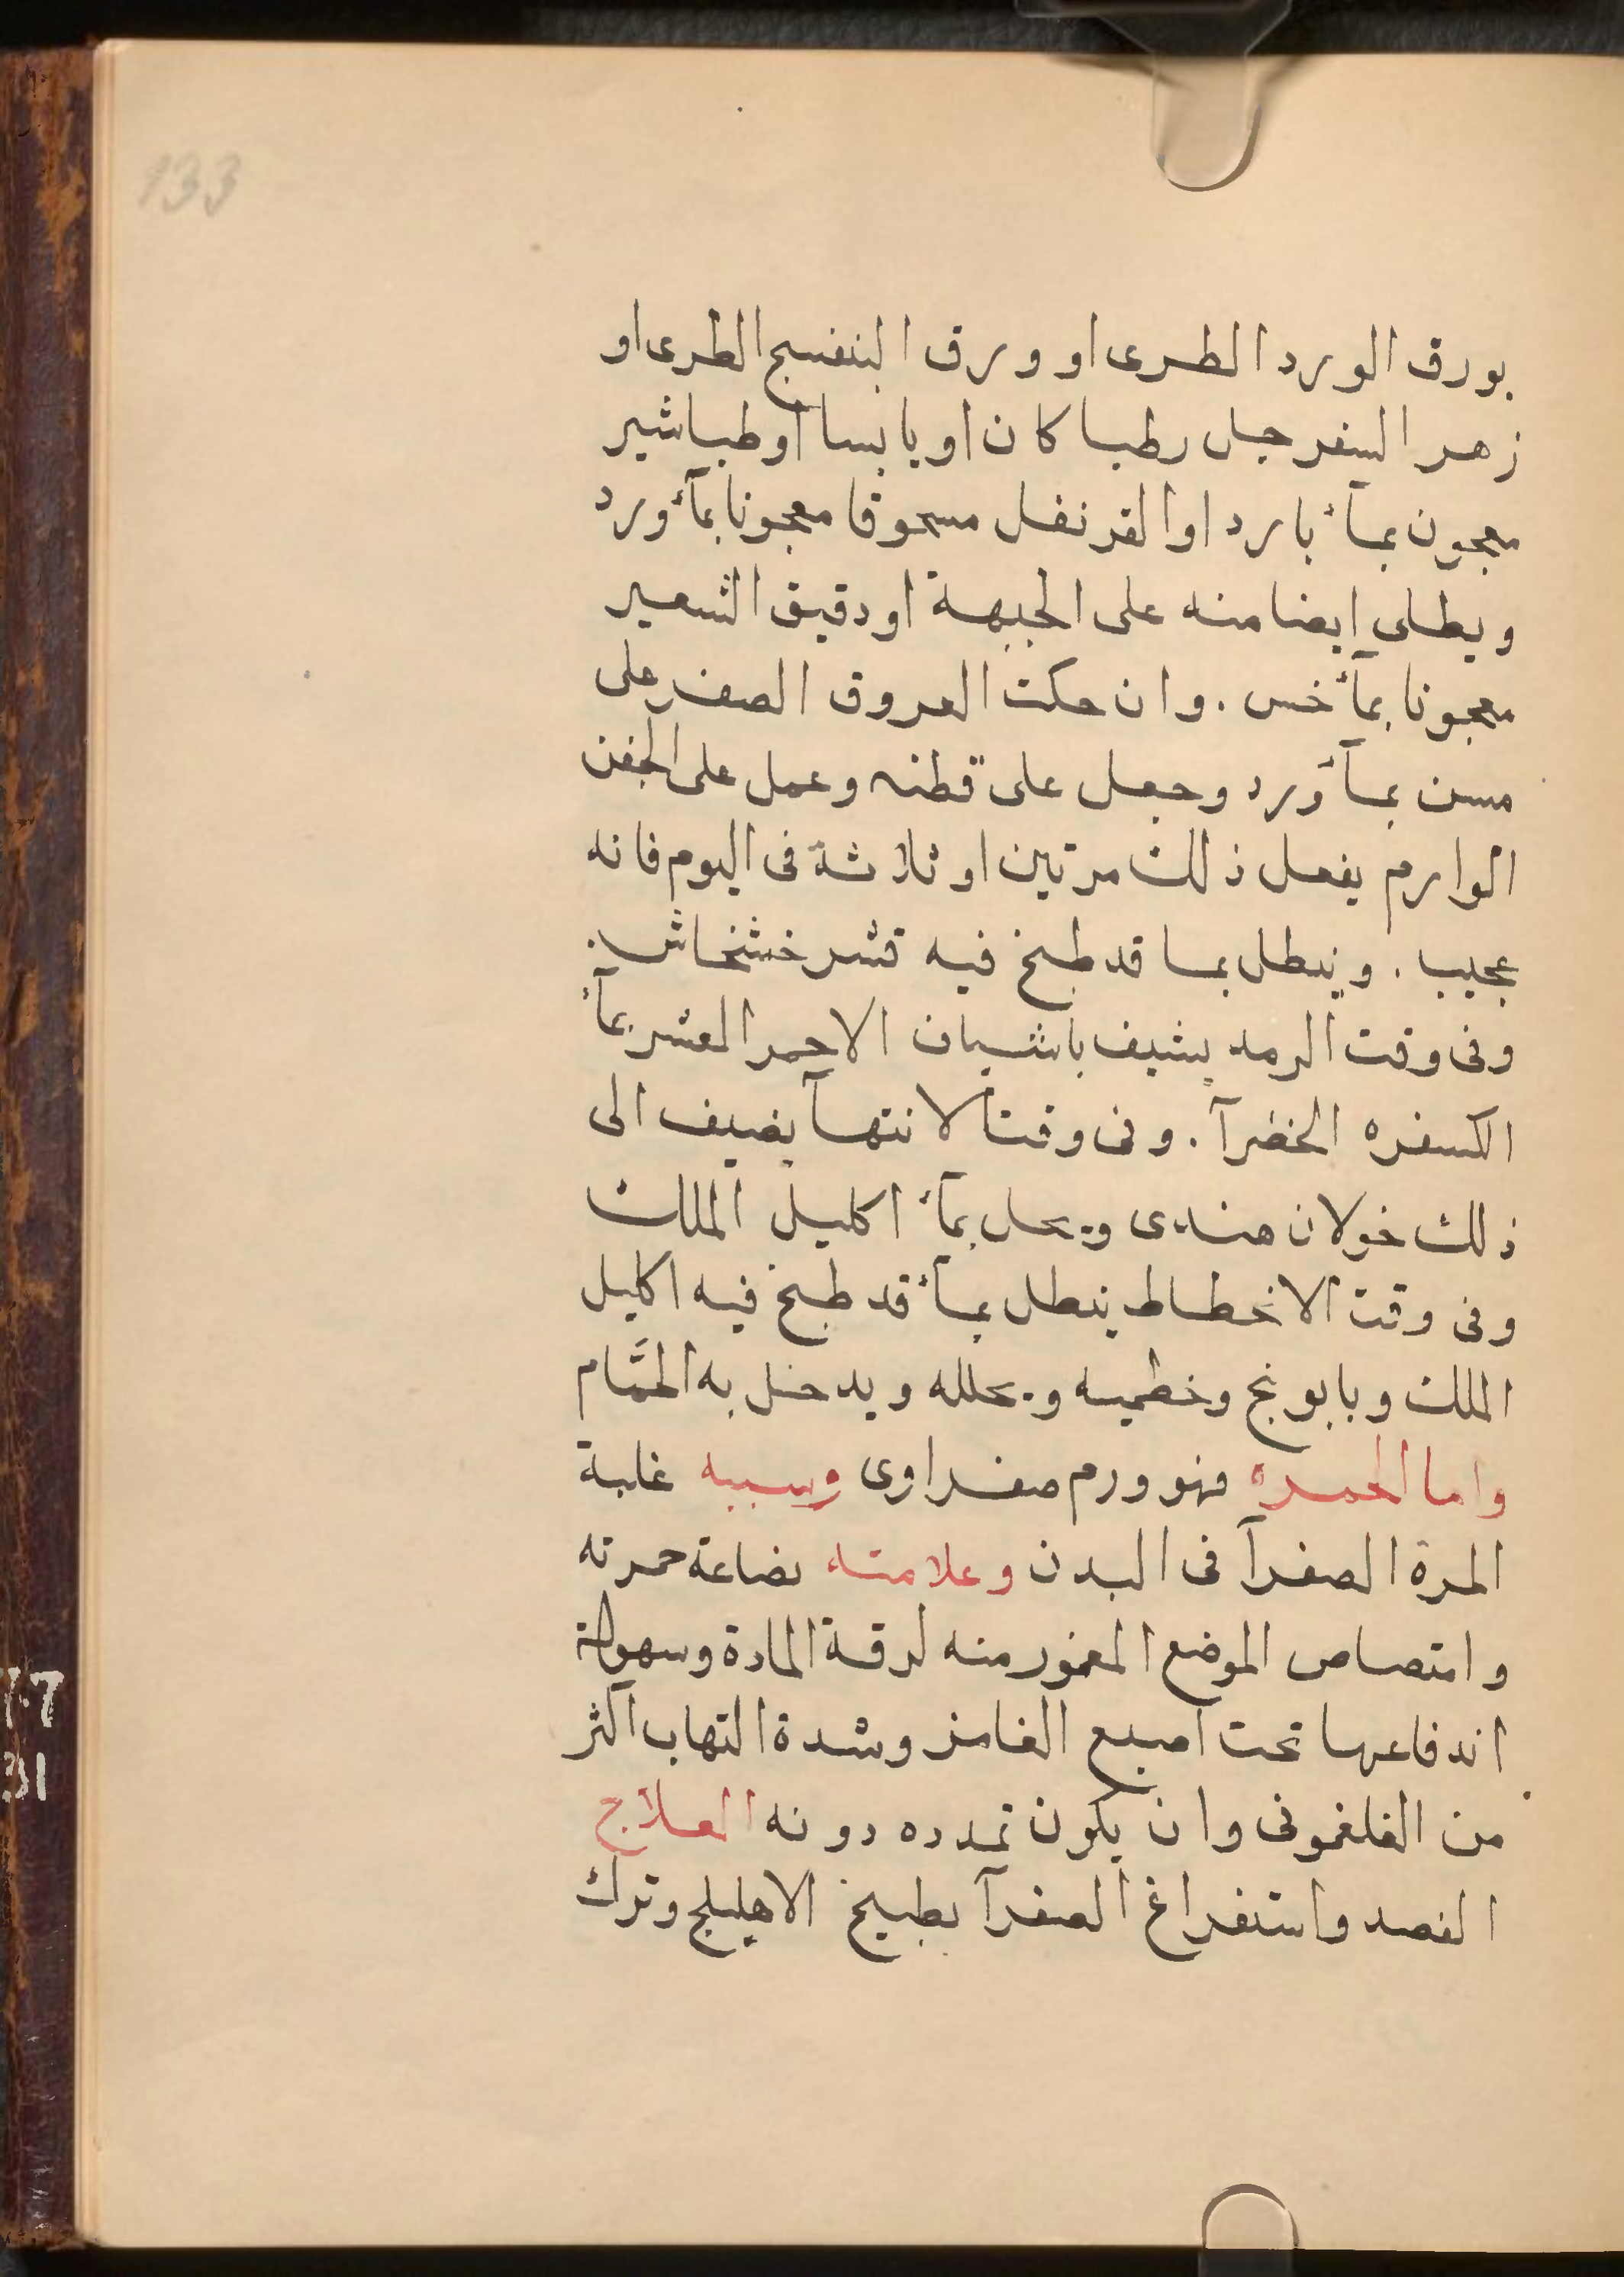 133
بورق الورد الطرى او ورق البنفسج الطرى او
زهر السفرجل رطبا كان او يابسا او طباشير
معجون بمآء بارد او القرنفل مسحوقا معجونا بمآء ورد
ويطلى ايضا منه على الجبهة او دقيق الشعير
معجونا بمآء خس . وان حكت العروق الصفر على
مسن بمآء ورد وجعل على قطنه وعمل على الجفن
الوارم يفعل ذلك مرتين او ثلاثة فى اليوم فانه
عجيب . وينطل بما قد طبخ فيه قشر خشخاش .
وفى وقت الرمد يشيف باشياف الاحمر المعشر بمآء
الكسفره الخضرآ . وفى وقت الانتهآ يضيف الى
ذلك خولان هندى ويحل بمآء اكليل الملك
وفى وقت الانحطاط ينطل بمآء قد طبخ فيه اكليل
الملك وبابونج وخطميه ويحلله ويدخل به الحمَّام
واما الحمره فهو ورم صفراوى وسببه غلبة
المرة الصفرآ فى البدن وعلامته نصاعة حمرته
وامتصاص الموضع المغمور منه لرقة المادة وسهولة
اندفاعها تحت اصبع الغامز وشدة التهاب اكثر
من الفلغمونى وان يكون تمدده دونه العلاج
الفصد واستفراغ الصفرآ بطبيخ الاهليلج وترك
7.7
31